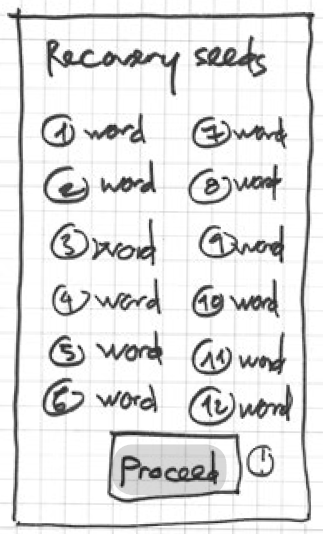 Recovery seeds
1 word 7 word
2 word 8 word
3 word 9 word
4 word 10 word
5 word 11 word
6 word 12 word
Proceed !